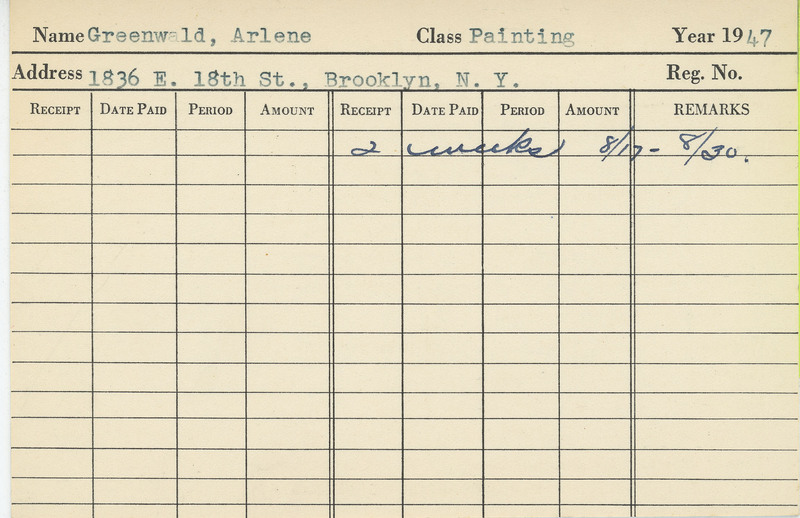 Name Greenwald, Arlene Class Painting Year 1947
Address 1836 E. 18th St., Brooklyn, N. Y. Reg. No.
RECEIPT DATE PAID PERIOD AMOUNT RECEIPT DATE PAID PERIOD AMOUNT REMARKS
2 weeks 8/17 - 8/30.